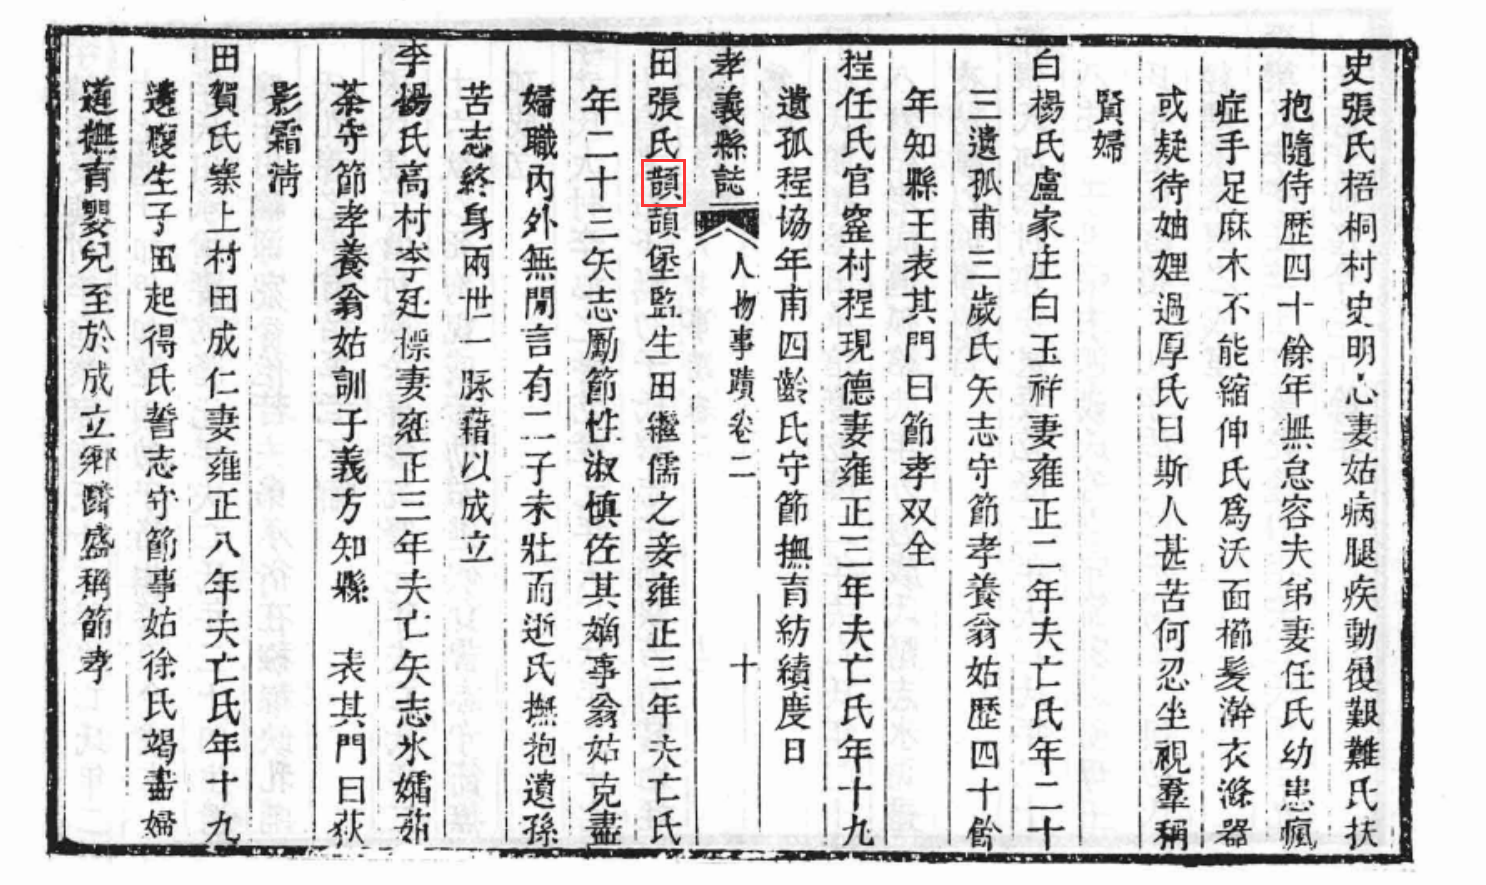 史張氏梧桐村史明心妻姑病腿疾動履艱難氏扶
抱隨侍歴四十餘年無怠容夫弟妻任氏幼患瘋
症手足麻木不能縮伸氏爲沃面櫛髮澣衣滌器
或疑待妯娌過厚氏曰斯人甚苦何忍坐視羣稱
賢婦
白楊氏盧家庄白玉祥妻雍正二年夫亡氏年二十
三遺孤甫三歲氏矢志守節孝養翁姑歴四十餘
年知縣王表其門曰節孝双全
程任氏官窰村程現德妻雍正三年夫亡氏年十九
遺孤程協年甫四齡氏守節撫育紡績度日
孝義縣誌 人物事蹟卷二 十
田張氏頡堡監生田繼儒之妾雍正三年夫亡氏
年二十三矢志勵節性淑慎佐其嫡事翁姑克盡
婦職內外無閒言有二子未壯而逝氏撫抱遺孫
苦志終身兩世一脉藉以成立
李楊氏高村李廷標妻雍正三年夫亡矢志氷孀茹
荼守節孝養翁姑訓子義方知縣 表其門曰荻
影霜清
田賀氏寨上村田成仁妻雍正八年夫亡氏年十九
遺腹生子田起得氏誓志守節事姑徐氏竭盡婦
道撫育嬰兒至於成立鄉隣盛稱節孝